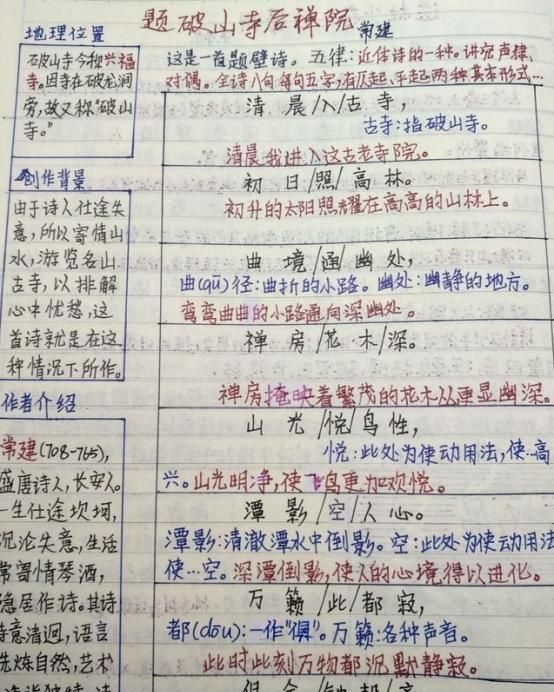 题破山寺后禅院 常建
地理位置
破山寺今称兴福
寺。因寺在破龙涧
旁,故又称"破山
寺。"
创作背景
由于诗人仕途失
意,所以寄情山
水,游览名山
古寺,以排解
心中忧愁,这
首诗就是在这
种情况下所作。
作者介绍
常建(708-765),
盛唐诗人,长安人。
一生仕途坎坷,
沉沦失意,生活
常寄情琴酒,
隐居作诗。其诗
诗意清迥,语言
洗炼自然,艺术
这是一首题壁诗。五律:近体诗的一种。讲究声律、
对偶。全诗八句每句五字,有仄起、平起两种基本形式…
清晨/入/古寺,
古寺:指破山寺。
清晨我进入这古老寺院。
初日/照/高林。
初升的太阳照耀在高高的山林上。
曲境/通/幽处,
曲(qū)径:曲折的小路。幽处:幽静的地方。
弯弯曲曲的小路通向深幽处。
禅房/花木/深。
禅房掩映着繁茂的花木从更显幽深。
山光/悦/鸟性,
悦:此处为使动用法,使…高
兴。山光明净,使飞鸟更加欢悦。
潭影/空/人心。
潭影:清澈潭水中倒影。空:此处为使动用法
使…空。深潭倒影,使人的心境得以进化。
万籁/此/都寂,
都(dōu):一作"惧"。万籁:各种声音。
此时此刻万物都沉默静寂。